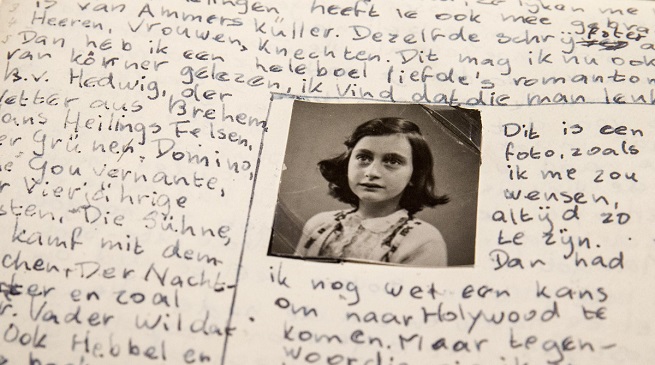 heeft ie ook mee
is van Ammers Küller. Dezelfde schrij
Heeren, Vrouwen, Knechten. Dit mag ik nu ook
Dan heb ik een heleboel liefde's romanton
van körner gelezen, ik vind dat die man leuk
b.v. Hedwig, der
Vetter aus Brehem,
ans Heilings Felsen,
er Grünen Domino,
Gouvernante,
r Vierjährige
sten, Die Sühne,
kamf mit dem
chen, Der Nacht-
ter en zoal
r. Vader wil dat
Ook Hebbel en
Dit is een
foto, zoals
ik me zou
wensen,
altijd zo
te zijn.
Dan had
ik nog wel een kans
om naar Holywood te
komen. Maar tegen-
woordig